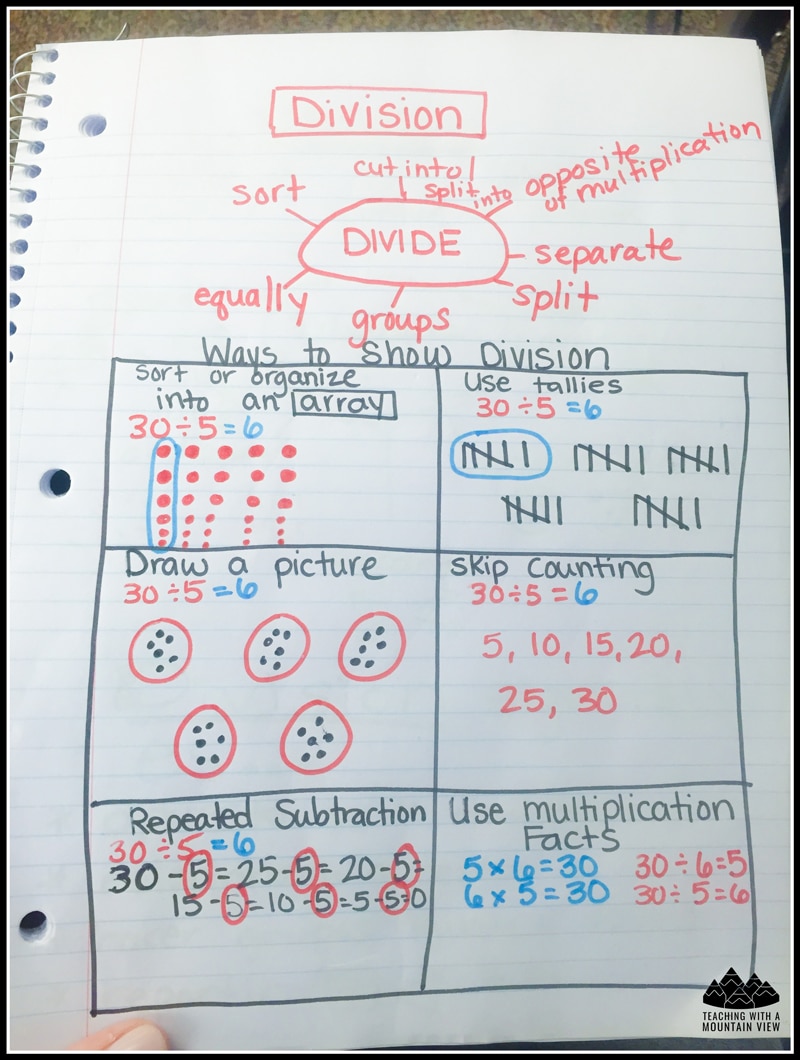 Division
cut into
split into
opposite
of multiplication
sort
DIVIDE
separate
equally
split
groups
Ways to Show Division
Sort or organize
into an array
30÷5=6
Use tallies
30÷5=6
Draw a picture
30÷5=6
Skip counting
30÷5=6
5, 10, 15, 20,
25, 30
Repeated Subtraction
30÷5=6
30-5=25-5=20-5=
15-5=10-5=5-5=0
Use multiplication
Facts
5×6=30 30÷6=5
6×5=30 30÷5=6
TEACHING WITH A
MOUNTAIN VIEW